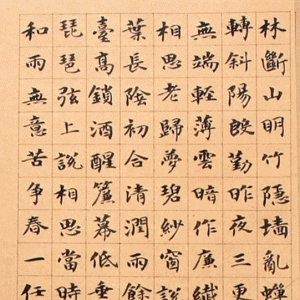 林斷山明竹隱墻亂蟬
轉斜陽殷勤昨夜三更
無端輕薄雲暗作廉纖
相思老歸夢碧紗窗說
葉長陰初合清潤雨餘
臺髙鎖酒醒簾幕低垂
琵琶弦上說相思當時
和雨無意苦争春一任